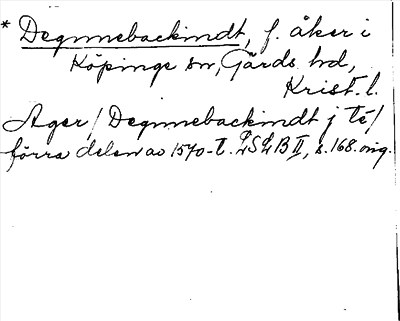 * Degnnebackindt, f. åker i
Köpinge sn, Gärds hd,
Krist. l.
Ager / Degnnebackindt j të /
förra delen av 1570-t. LSLB II, s. 168. orig.